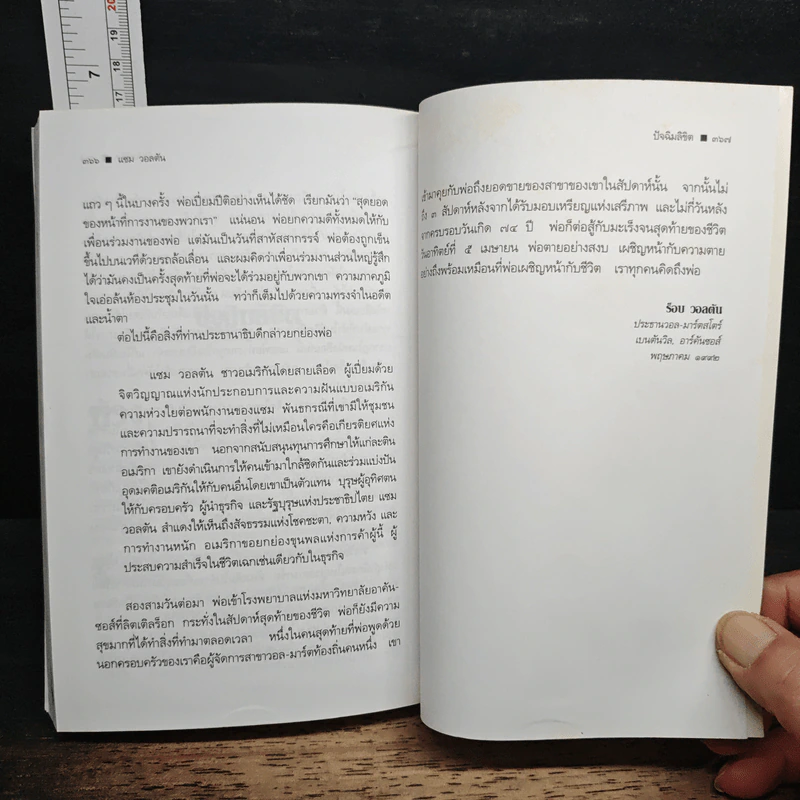 20
19
18
17
7
๓๖๖ ■ แซม วอลตัน
แถว ๆ นี้ในบางครั้ง พ่อเปี่ยมปีติอย่างเห็นได้ชัด เรียกมันว่า "สุดยอด
ของหน้าที่การงานของพวกเรา" แน่นอน พ่อยกความดีทั้งหมดให้กับ
เพื่อนร่วมงานของพ่อ แต่มันเป็นวันที่สาหัสสากรรจ์ พ่อต้องถูกเข็น
ขึ้นไปบนเวทีด้วยรถล้อเลื่อน และผมคิดว่าเพื่อนร่วมงานส่วนใหญ่รู้สึก
ได้ว่ามันคงเป็นครั้งสุดท้ายที่พ่อจะได้ร่วมอยู่กับพวกเขา ความภาคภูมิ
ใจเอ่อล้นห้องประชุมในวันนั้น ทว่าก็เต็มไปด้วยความทรงจำในอดีต
และน้ำตา
ต่อไปนี้คือสิ่งที่ท่านประธานาธิบดีกล่าวยกย่องพ่อ
แซม วอลตัน ชาวอเมริกันโดยสายเลือด ผู้เปี่ยมด้วย
จิตวิญญาณแห่งนักประกอบการและความฝันแบบอเมริกัน
ความห่วงใยต่อพนักงานของแซม พันธกรณีที่เขามีให้ชุมชน
และความปรารถนาที่จะทำสิ่งที่ไม่เหมือนใครคือเกียรติยศแห่ง
การทำงานของเขา นอกจากสนับสนุนทุนการศึกษาให้แก่ละติน
อเมริกา เขายังดำเนินการให้คนเข้ามาใกล้ชิดกันและร่วมแบ่งปัน
อุดมคติอเมริกันให้กับคนอื่นโดยเขาเป็นตัวแทน บุรุษผู้อุทิศตน
ให้กับครอบครัว ผู้นำธุรกิจ และรัฐบุรุษแห่งประชาธิปไตย แซม
วอลตัน สำแดงให้เห็นถึงสัจธรรมแห่งโชคชะตา, ความหวัง และ
การทำงานหนัก อเมริกาขอยกย่องขุนพลแห่งการค้าผู้นี้ ผู้
ประสบความสำเร็จในชีวิตเฉกเช่นเดียวกับในธุรกิจ
สองสามวันต่อมา พ่อเข้าโรงพยาบาลแห่งมหาวิทยาลัยอาคัน-
ซอส์ที่ลิตเติลร็อก กระทั่งในสัปดาห์สุดท้ายของชีวิต พ่อก็ยังมีความ
สุขมากที่ได้ทำสิ่งที่ทำมาตลอดเวลา หนึ่งในคนสุดท้ายที่พ่อพูดด้วย
นอกครอบครัวของเราคือผู้จัดการสาขาวอล-มาร์ตท้องถิ่นคนหนึ่ง เขา
ปัจฉิมลิขิต ■ ๓๖๗
เข้ามาคุยกับพ่อถึงยอดขายของสาขาของเขาในสัปดาห์นั้น จากนั้นไม่
ถึง ๓ สัปดาห์หลังจากได้รับมอบเหรียญแห่งเสรีภาพ และไม่กี่วันหลัง
จากครบรอบวันเกิด ๗๔ ปี พ่อก็ต่อสู้กับมะเร็งจนสุดท้ายของชีวิต
วันอาทิตย์ที่ ๕ เมษายน พ่อตายอย่างสงบ เผชิญหน้ากับความตาย
อย่างถึงพร้อมเหมือนที่พ่อเผชิญหน้ากับชีวิต เราทุกคนคิดถึงพ่อ
ร็อบ วอลตัน
ประธานวอล-มาร์ตสโตร์
เบนตันวิล, อาร์คันซอส์
พฤษภาคม ๑๙๙๒